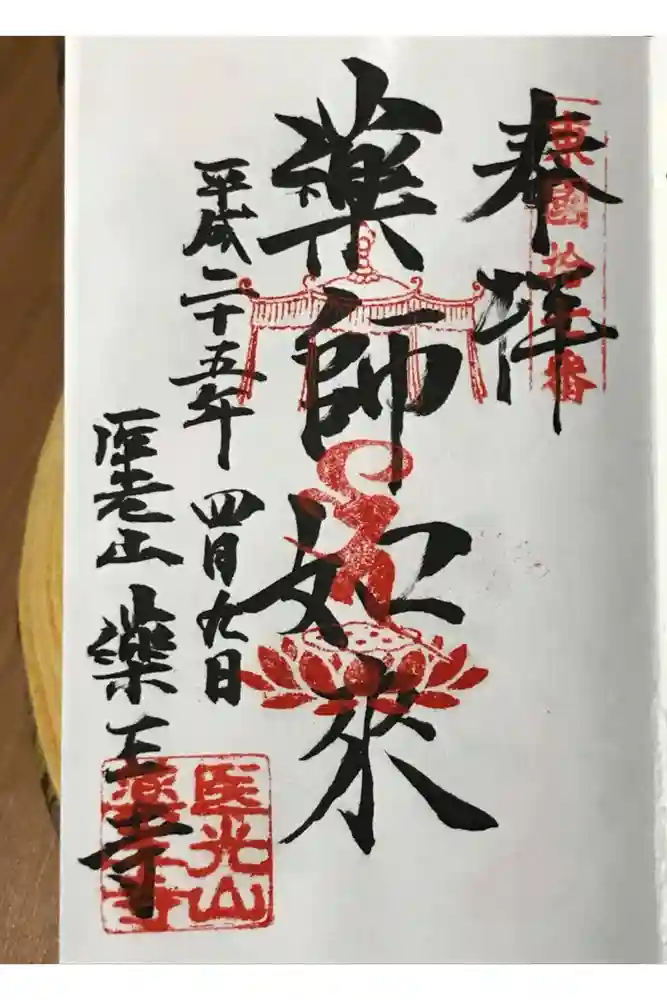 奉拝
東國拾番
薬師如来
平成二十五年四月九日
医光山薬王寺
医光山
薬王寺